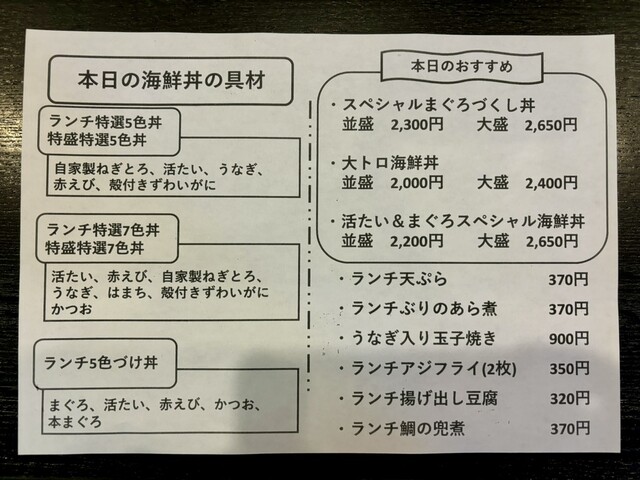 本日の海鮮丼の具材
ランチ特選5色丼
特盛特選5色丼
自家製ねぎとろ、活たい、うなぎ、
赤えび、殻付きずわいがに
ランチ特選7色丼
特盛特選7色丼
活たい、赤えび、自家製ねぎとろ、
うなぎ、はまち、殻付きずわいがに
かつお
ランチ5色づけ丼
まぐろ、活たい、赤えび、かつお、
本まぐろ
本日のおすすめ
・スペシャルまぐろづくし丼
並盛 2,300円 大盛 2,650円
・大トロ海鮮丼
並盛 2,000円 大盛 2,400円
・活たい＆まぐろスペシャル海鮮丼
並盛 2,200円 大盛 2,650円
・ランチ天ぷら 370円
・ランチぶりのあら煮 370円
・うなぎ入り玉子焼き 900円
・ランチアジフライ(2枚) 350円
・ランチ揚げ出し豆腐 320円
・ランチ鯛の兜煮 370円